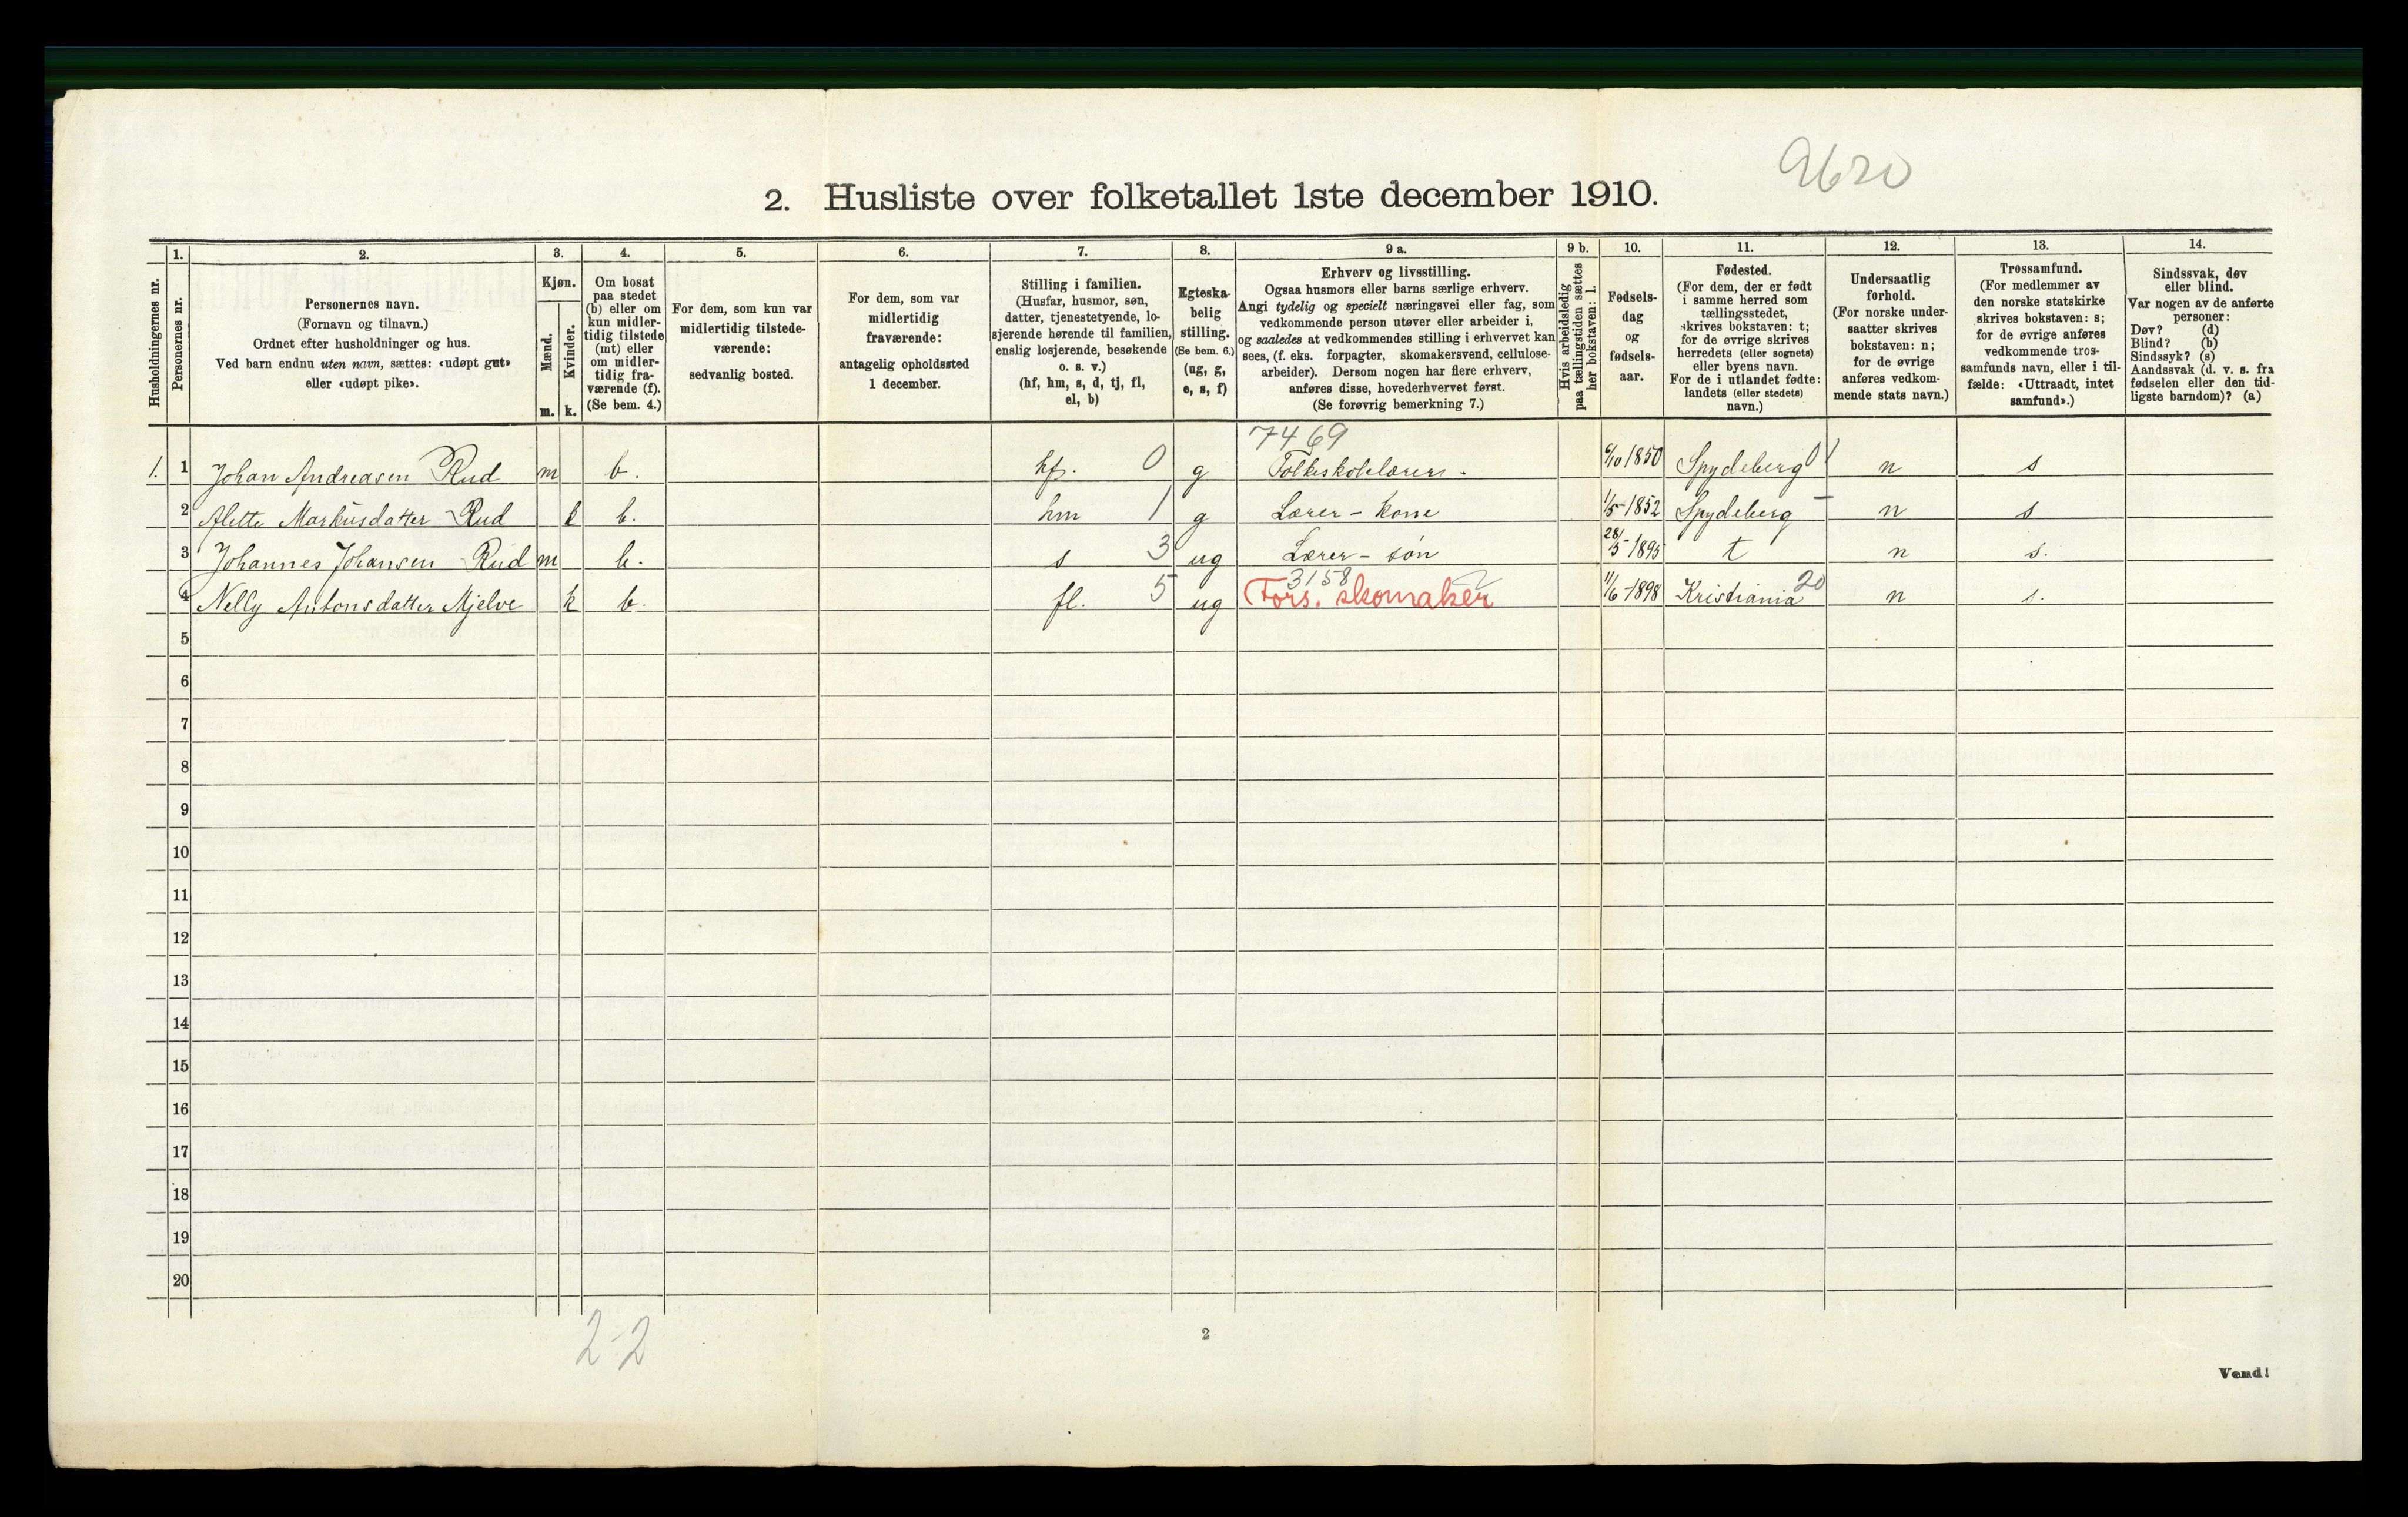 9620
2. Husliste over folketallet 1ste december 1910.
Husholdningernes nr.
1.
Personernes nr.
2.
Personernes navn.
(Fornavn og tilnavn.)
Ordnet efter husholdninger og hus.
Ved barn endnu uten navn, sættes: «udøpt gut»
eller «udøpt pike».
3.
Kjøn.
Mænd.
m.
Kvinder.
k.
4.
Om bosat
paa stedet
(b) eller om
kun midler-
tidig tilstede
(mt) eller
om midler-
tidig fra-
værende (f).
(Se bem. 4.)
5.
For dem, som kun var
midlertidig tilstede-
værende:
sedvanlig bosted.
6.
For dem, som var
midlertidig
fraværende:
antagelig opholdssted
1 december.
7.
Stilling i familien.
(Husfar, husmor, søn,
datter, tjenestetyende, lo-
sjerende hørende til familien,
enslig losjerende, besøkende
o. s. v.)
(hf, hm, s, d, tj, fl,
el, b)
8.
Egteska-
belig
stilling.
(Se bem. 6.)
(ug, g,
e, s, f)
9 a.
Erhverv og livsstilling.
Ogsaa husmors eller barns særlige erhverv.
Angi tydelig og specielt næringsvei eller fag, som
vedkommende person utøver eller arbeider i,
og saaledes at vedkommendes stilling i erhvervet kan
sees, (f. eks. forpagter, skomakersvend, cellulose-
arbeider). Dersom nogen har flere erhverv,
anføres disse, hovederhvervet først.
(Se forøvrig bemerkning 7.)
9 b.
Hvis arbeidsledig
paa tællingstiden sættes
her bokstaven: l.
10.
Fødsels-
dag
og
fødsels-
aar.
11.
Fødested.
(For dem, der er født
i samme herred som
tællingsstedet,
skrives bokstaven: t;
for de øvrige skrives
herredets (eller sognets)
eller byens navn.
For de i utlandet fødte:
landets (eller stedets)
navn.)
12.
Undersaatlig
forhold.
(For norske under-
saatter skrives
bokstaven: n;
for de øvrige
anføres vedkom-
mende stats navn.)
13.
Trossamfund.
(For medlemmer av
den norske statskirke
skrives bokstaven: s;
for de øvrige anføres
vedkommende tros-
samfunds navn, eller i til-
fælde: «Uttraadt, intet
samfund».)
14.
Sindssvak, døv
eller blind.
Var nogen av de anførte
personer:
Døv? (d)
Blind? (b)
Sindssyk? (s)
Aandssvak (d. v. s. fra
fødselen eller den tid-
ligste barndom)? (a)
7469
1. 1 Johan Andreasen Rud m b. hf. 0 g Folkeskolelærer. 6/10 1850 Spydeberg 01 n s
2 Alette Markusdatter Rud k b. hm 1 g Lærer-kone 1/5-1852 Spydeberg – n s
3 Johannes Johansen Rud m b. s 3 ug Lærer-søn 28/5-1895 t n s.
3158
4 Nelly Antonsdatter Mjelve k b. fl. 5 ug Fors. skomaker 11/6-1898 Kristiania 20 n s.
5
6
7
8
9
10
11
12
13
14
15
16
17
18
19
20
2-2
2
Vend!